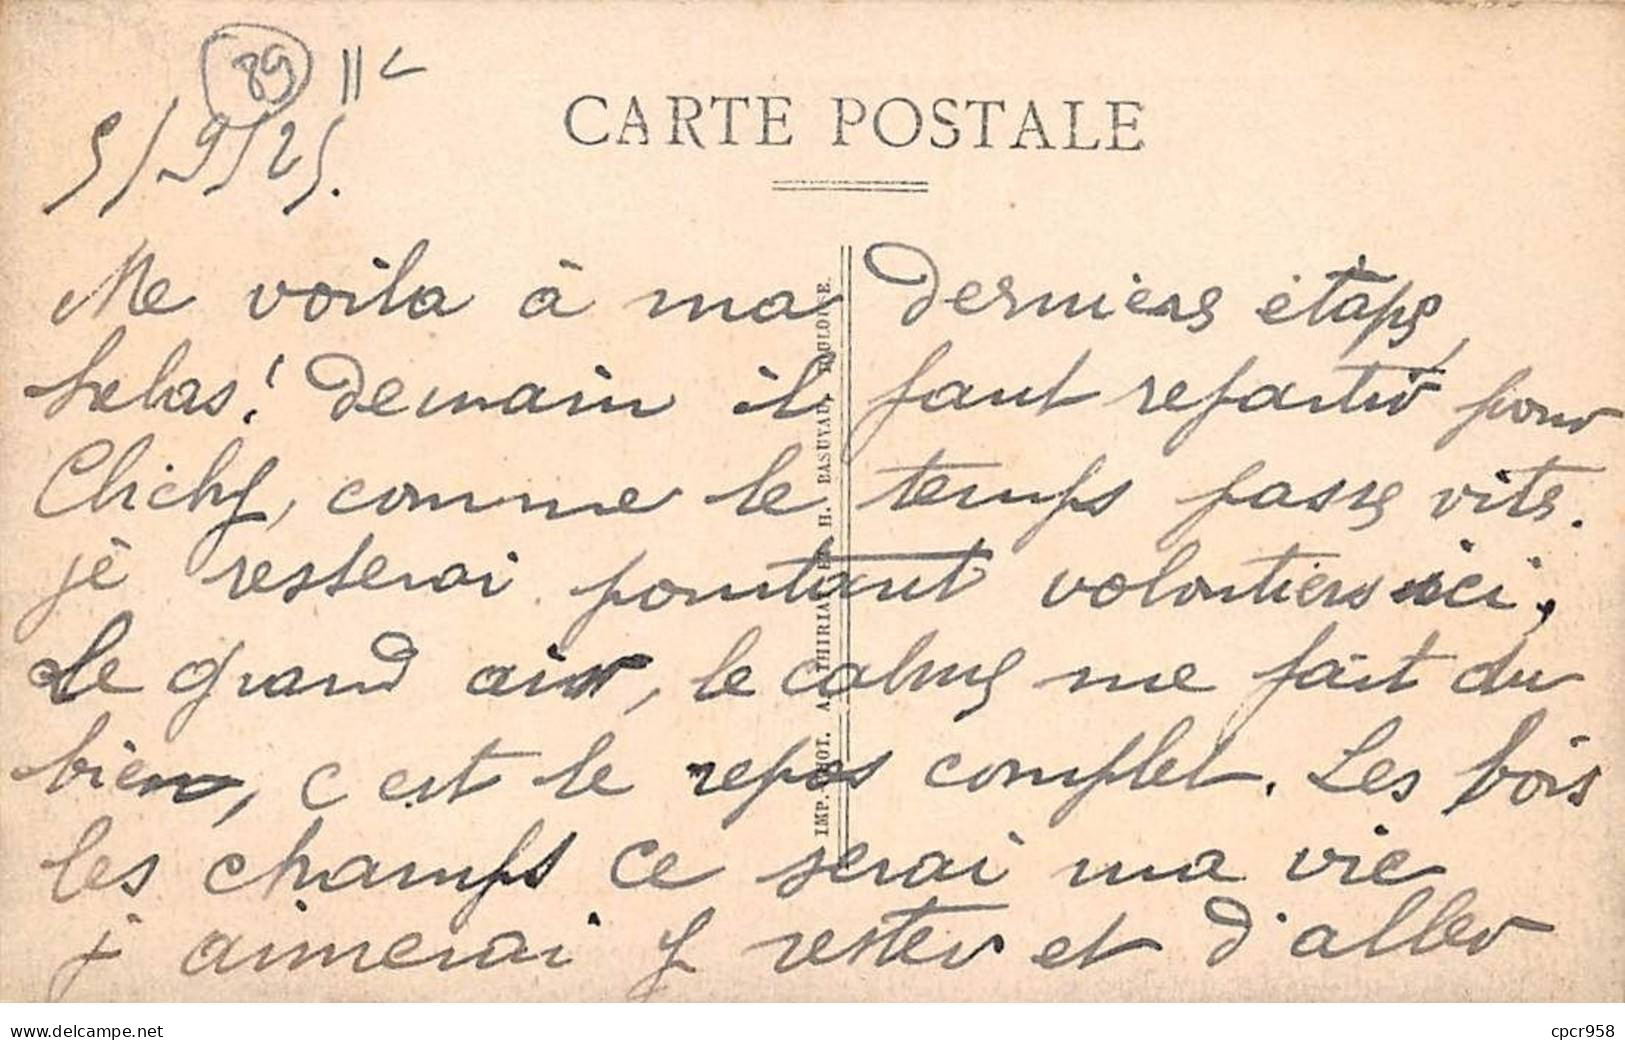 89 11 c
5/9/25.
CARTE POSTALE
Me voila à ma derniere étape,
helas! Demain il faut repartir pour
Clichy, comme le temps passe vite.
je resterai pourtant volontiers ici,
Le grand air, le calme me fait du
bien, c est le repos complet. Les bois
les champs ce serai ma vie
j aimerai y rester et d'aller
IMP. PHOT. A. THIRIAT ET H. BASUYAU, TOULOUSE.
www.delcampe.net
cpcr958